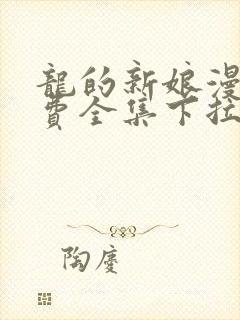 龍的新娘漫
費全集下拉
陶慶